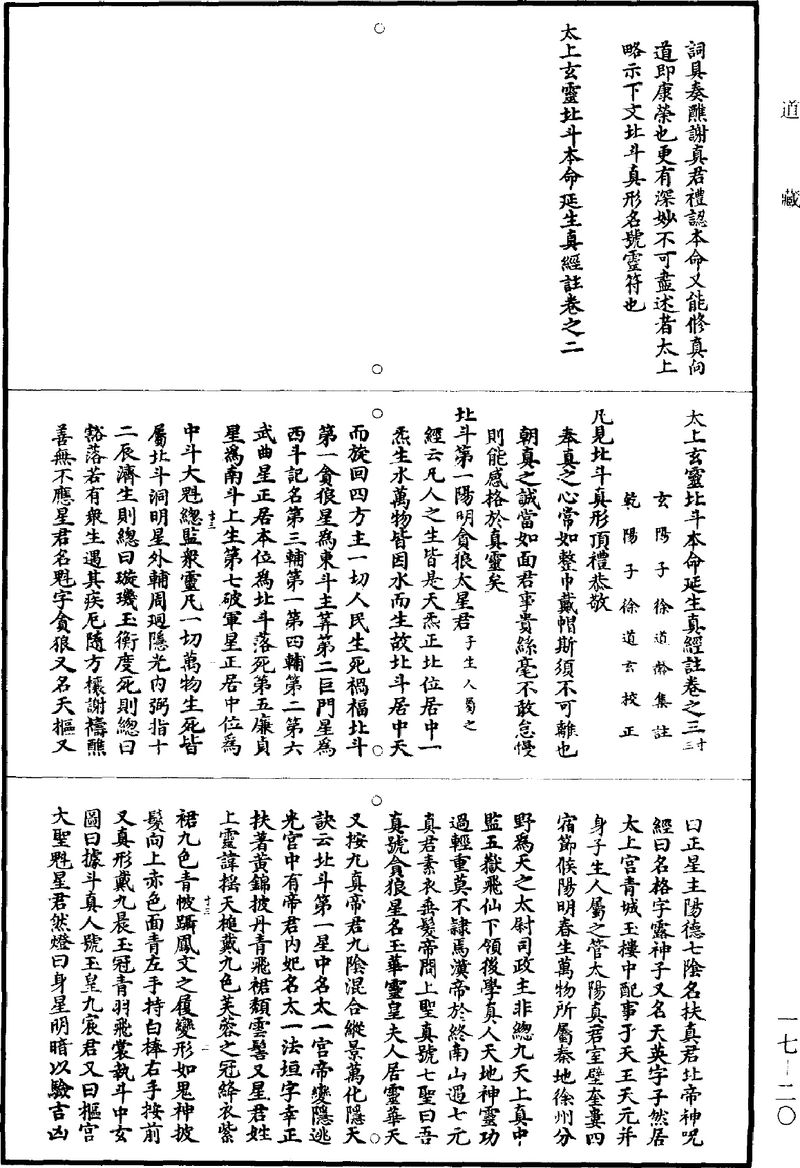 道藏
詞具奏醮謝真君禮認本命又能修真向
道即康榮也更有深妙不可盡述者太上
略示下文北斗真形名號靈符也
太上玄靈北斗本命延生真經註卷之二
太上玄靈北斗本命延生真經註卷之三 寸三
玄陽子徐道齡集註
乾陽子徐道玄校正
凡見北斗真形頂禮恭敬
奉真之心常如整巾戴帽斯須不可離也
朝真之誠當如面君事貴絲毫不敢怠慢
則能感格於真靈矣
北斗第一陽明貪狼太星君 子生人屬之
經云凡人之生皆是天炁正北位居中一
炁生水萬物皆因水而生故北斗居中天
而旋回四方主一切人民生死禍福北斗
第一貪狼星為東斗主筭第二巨門星為
西斗記名第三輔第一第四輔第二第六
武曲星正居本位為北斗落死第五廉貞
星為南斗上生第七破軍星正居中位為
中斗大魁總監衆靈凡一切萬物生死皆
屬北斗洞明星外輔周迴隱光內弼指十
二辰濟生則總曰璇璣玉衡度死則總曰
豁落若有衆生遇其疾厄隨方禳謝禱醮
善無不應星君名魁字貪狼又名天樞又
曰正星主陽德七陰名扶真君北帝神呪
經曰名格字露神子又名天英字子然居
太上宮青城玉樓中配事于天王天元并
身子生人屬之管太陽真君室壁奎婁四
宿節候陽明春生萬物所屬秦地徐州分
野為天之太尉司政主非總九天上真中
監五嶽飛仙下領後學真人天地神靈功
過輕重莫不隸焉漢帝於終南山遇七元
真君素衣垂髮帝問上聖真號七聖曰吾
真號貪狼星名玉華靈皇夫人居靈華天
又按九真帝君九陰混合縱景萬化隱天
訣云北斗第一星中名太一宮帝變隱逃
光宮中有帝君內妃名太一法垣字幸正
扶著黃錦披丹青飛裙頹雲髻又星君姓
上靈諱搖天槌戴九色芙蓉之冠絳衣紫
裙九色青帔躡鳳文之履變形如鬼神披
髮向上赤色面青左手持白棒右手按前
又真形戴九晨玉冠青羽飛裳執斗中玄
圖曰據斗真人號玉皇九宸君又曰樞宮
大聖魁星君然燈曰身星明暗以驗吉凶
一七—二〇